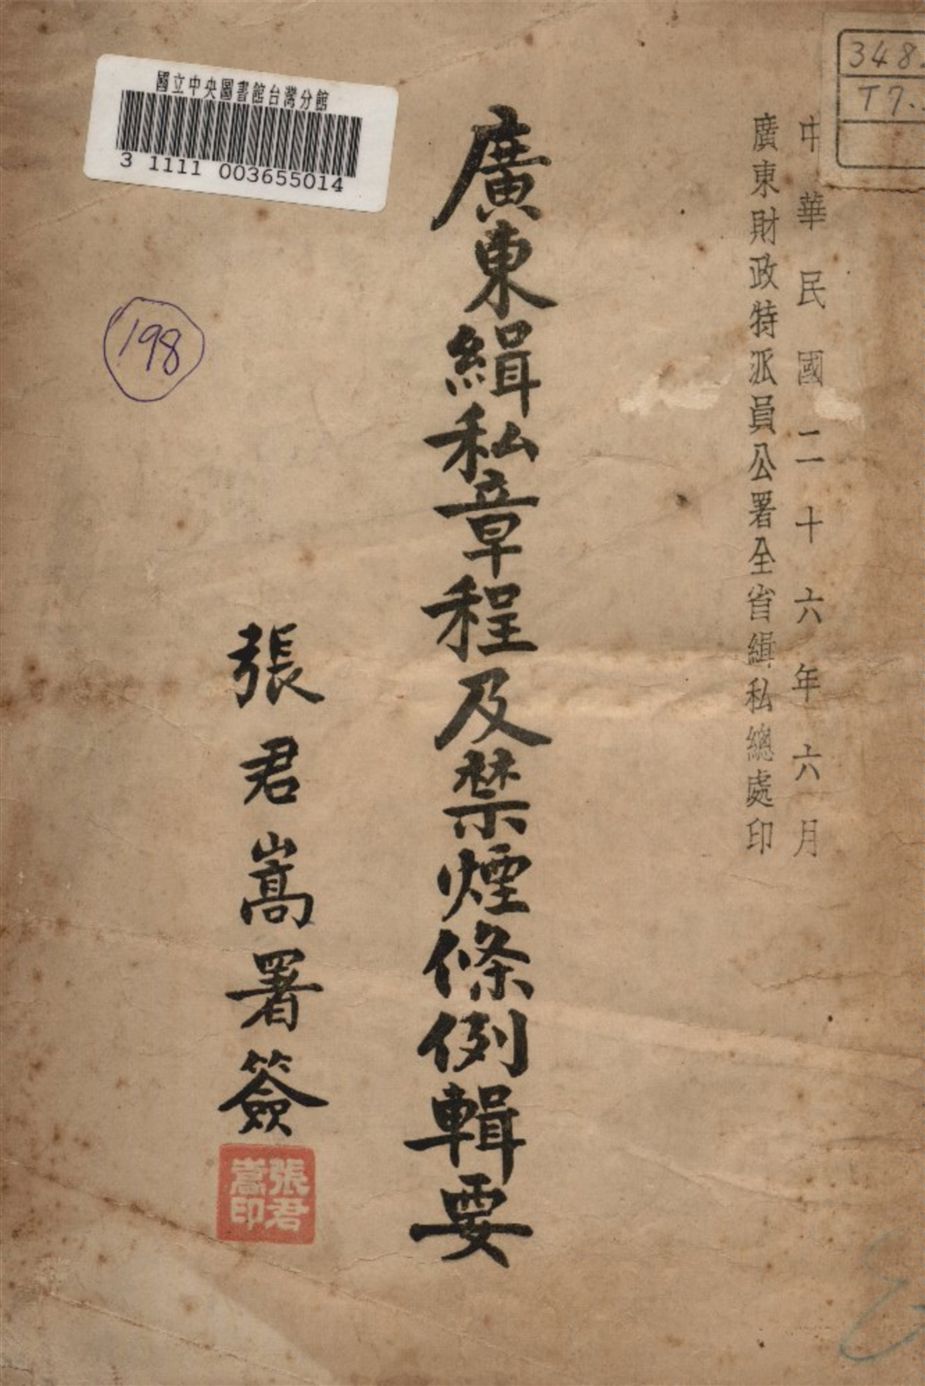 中華民國二十六年六月
廣東財政特派員公署全省緝私總處印
廣東緝私章程及禁煙條例輯要
張君嵩署簽
張君
嵩印
國立中央圖書館台灣分館
3 1111 003655014
198
348.
T7.